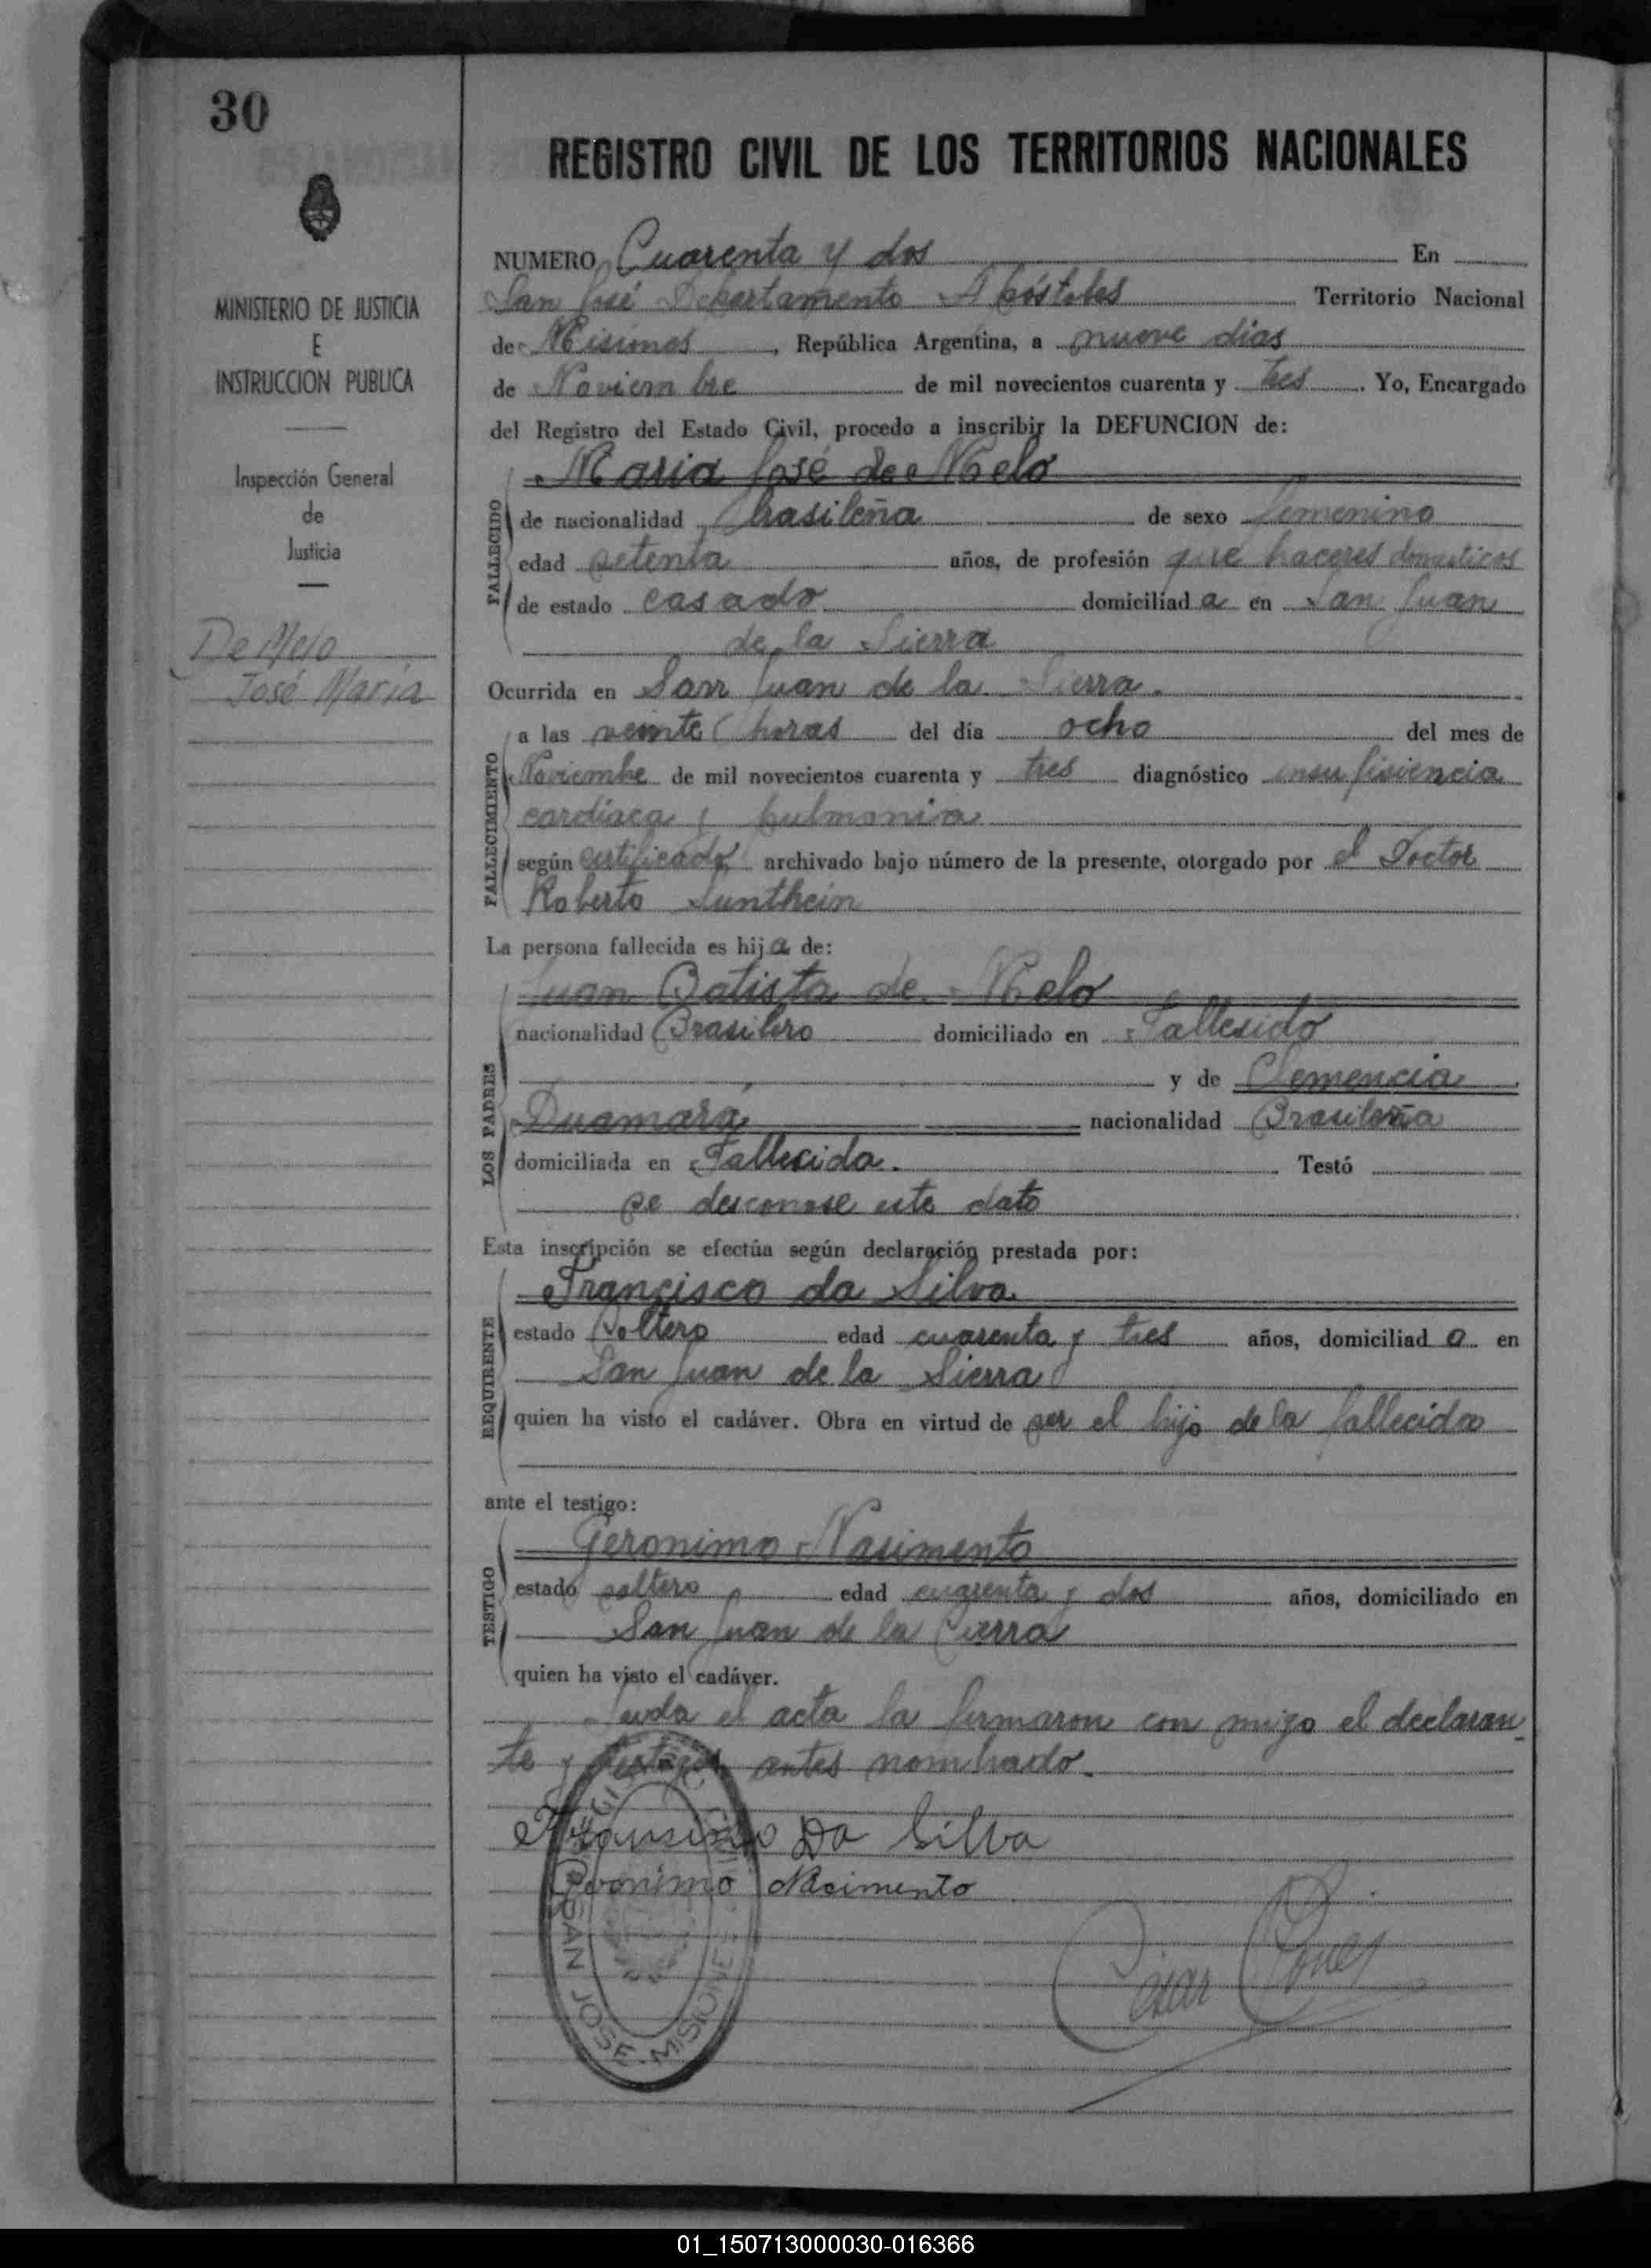 30
MINISTERIO DE JUSTICIA
E
INSTRUCCION PUBLICA
Inspección General
de
Justicia
De Melo
José María
REGISTRO CIVIL DE LOS TERRITORIOS NACIONALES
NUMERO Cuarenta y dos En
San José Departamento Apóstoles Territorio Nacional
de Misiones, República Argentina, a nueve dias
de Noviembre de mil novecientos cuarenta y tres. Yo, Encargado
del Registro del Estado Civil, procedo a inscribir la DEFUNCION de:
Maria José de Melo
FALLECIDO
de nacionalidad brasileña de sexo femenino
edad setenta años, de profesión que haceres domesticos
de estado casado domiciliad a en San Juan
de la Sierra
Ocurrida en San Juan de la Sierra.
FALLECIMIENTO
a las veinte horas del día ocho del mes de
Noviembe de mil novecientos cuarenta y tres diagnóstico insufisiencia
cardiaca y pulmonia
según certificado archivado bajo número de la presente, otorgado por el Doctor
Roberto Sunthein
La persona fallecida es hija de:
LOS PADRES
Juan Batista de Melo
nacionalidad Brasilero domiciliado en Fallesido
y de Clemencia
Duamará nacionalidad Brasileña
domiciliada en Fallecida. Testó
se desconose este dato
Esta inscripción se efectúa según declaración prestada por:
REQUIRENTE
Francisco da Silva
estado Soltero edad cuarenta y tres años, domiciliad o en
San Juan de la Sierra
quien ha visto el cadáver. Obra en virtud de ser el hijo de la fallecida
ante el testigo:
TESTIGO
Geronimo Nasimento
estado soltero edad cuarenta y dos años, domiciliado en
San Juan de la Cierra
quien ha visto el cadáver.
Leida el acta la firmaron con migo el declaran
te y testigos antes nombrado.
Fransisco Da Silva
Geronimo Nacimento
SAN JOSE - MISIONES
01_150713000030-016366